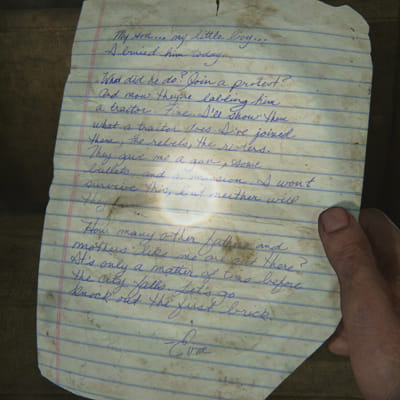 My son... my little boy...
I buried him today.
What did he do? Join a protest?
And now they're labeling him
a traitor. Fine. I'll show them
what a traitor does. I've joined
them, the rebels, the rioters.
They gave me a gun, some
bullets, and a mission. I won't
survive this, but neither will
they.
How many other fathers and
mothers like me are out there?
It's only a matter of time before
the city falls. Let's go
knock out the first brick.